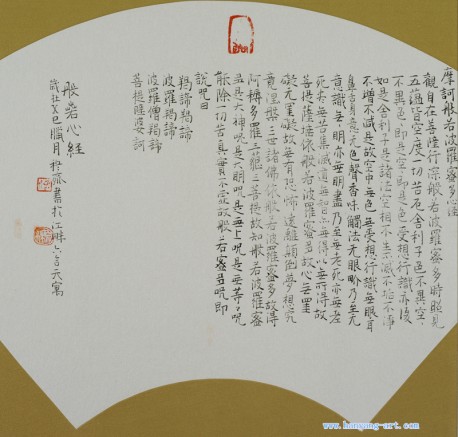 摩訶般若波羅蜜多心經
觀自在菩薩行深般若波羅蜜多時照見
五蘊皆空度一切苦厄舍利子色不異空空
不異色色即是空空即是色受想行識亦復
如是舍利子是諸法空相不生不滅不垢不淨
不增不減是故空中無色無受想行識無眼耳
鼻舌身意无色聲香味觸法无眼界乃至无
意識界無無明亦無無明盡乃至無老死亦無老
死盡无苦集滅道無智亦無得以無所得故
菩提薩埵依般若波羅蜜多故心無罣
礙无罣礙故無有恐怖遠離顛倒夢想究
竟涅槃三世諸佛依般若波羅蜜多故得
阿耨多羅三藐三菩提故知般若波羅蜜
多是大神咒是大明咒是無上咒是無等等咒
能除一切苦真實不虛故般若蜜多咒即
說咒曰
羯諦羯諦
波羅羯諦
波羅僧羯諦
菩提薩婆訶
般若心經
歲在己巳臘月 書於江畔
www.hanyang-art.com